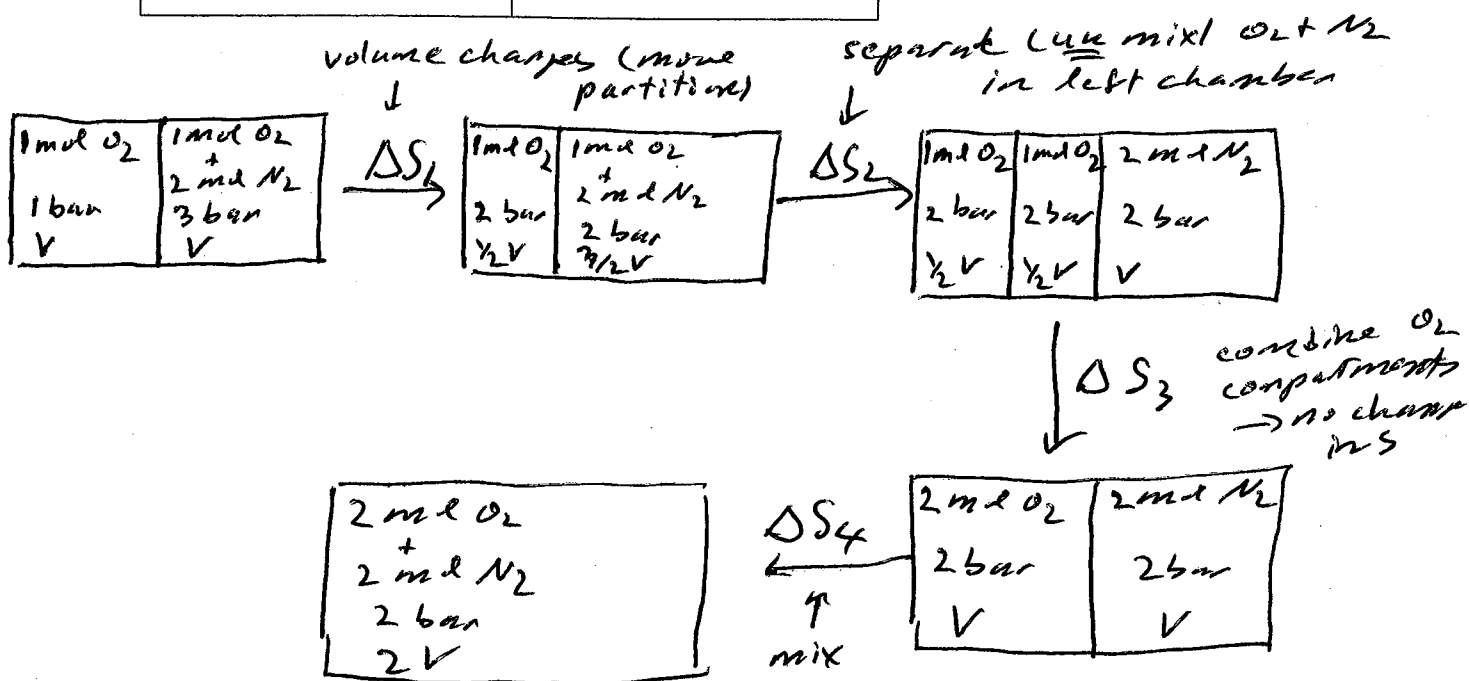 volume changes (move
partition)
separate (unmix) O₂ + N₂
in left chamber
1 mol O₂
1 bar
V
1 mol O₂
+
2 mol N₂
3 bar
V
ΔS₁
1 mol O₂
2 bar
½ V
1 mol O₂
+
2 mol N₂
2 bar
3/2 V
ΔS₂
1 mol O₂
2 bar
½ V
1 mol O₂
2 bar
½ V
2 mol N₂
2 bar
V
ΔS₃
combine O₂
compartments
→ no change
in S
2 mol O₂
2 bar
V
2 mol N₂
2 bar
V
ΔS₄
mix
2 mol O₂
+
2 mol N₂
2 bar
2 V